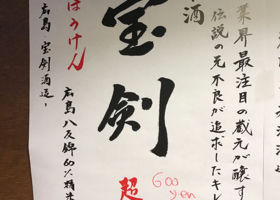 業界最注目の蔵元が醸す
伝説の元不良が追求したキレ
酒
宝剣
超
600
yen
ほうけん
広島八反錦60%精米
広島・宝剣酒造